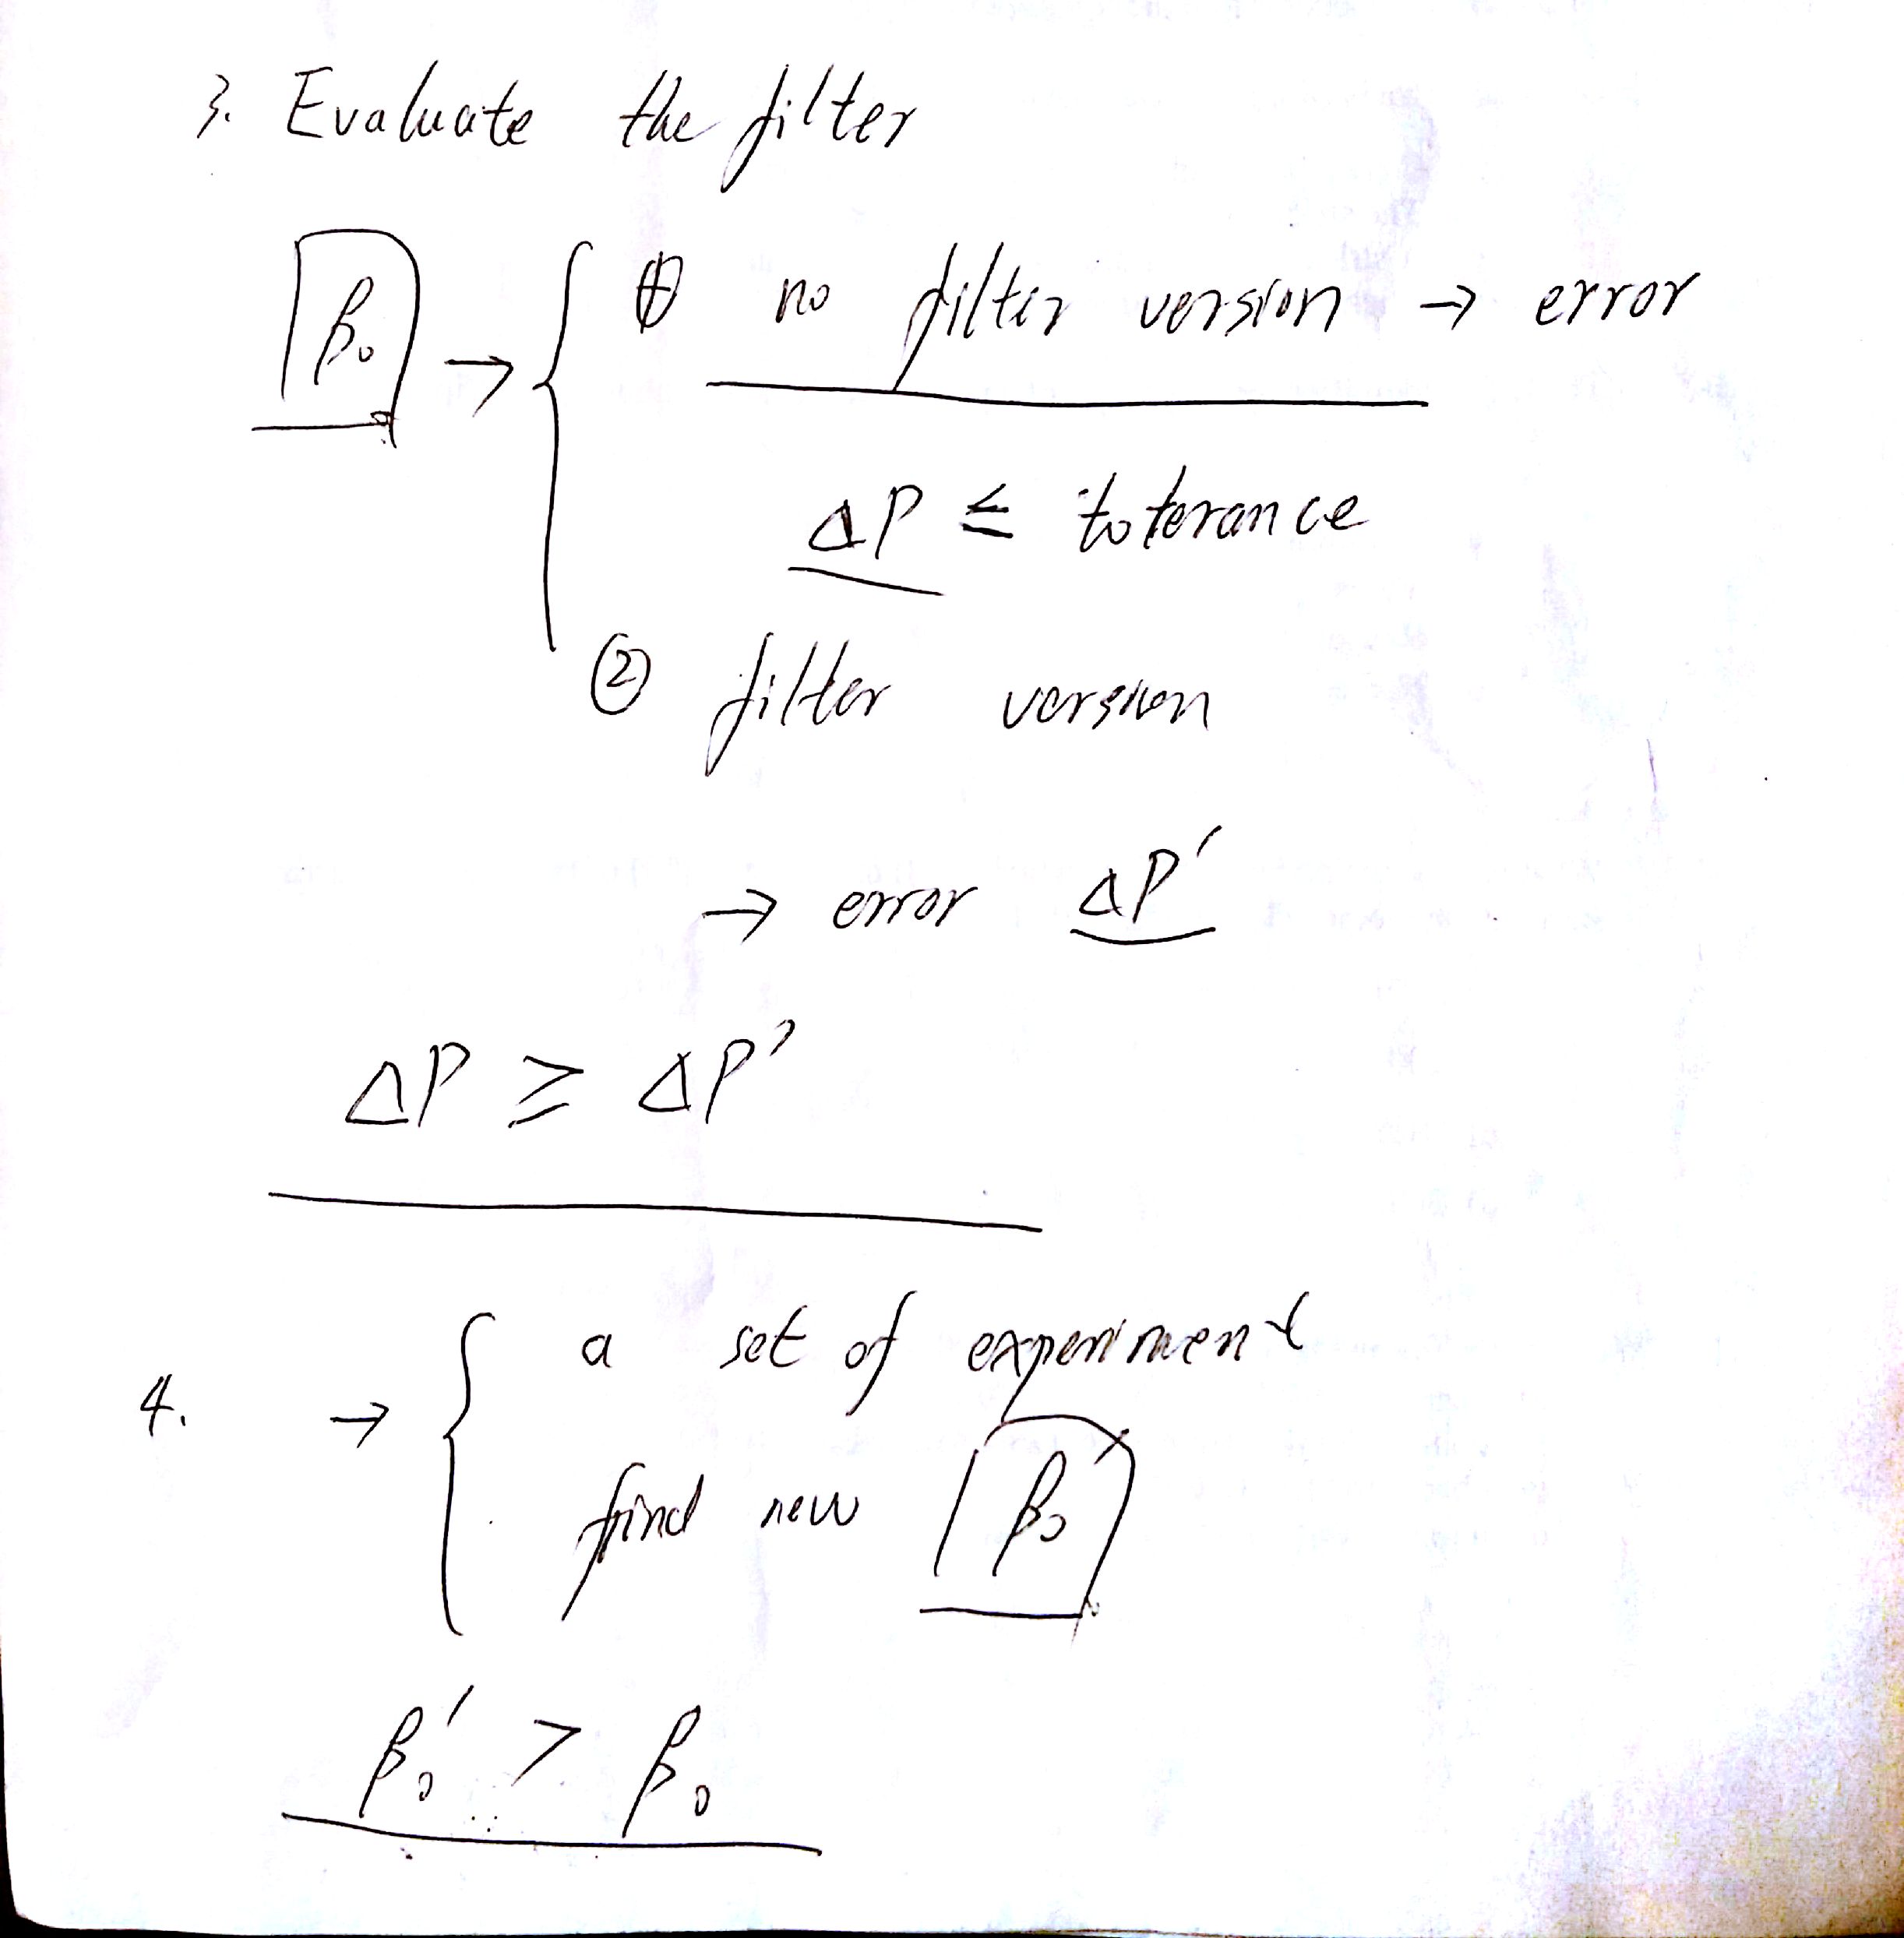 3. Evaluate the filter
β₀ → { ① no filter version → error
ΔP ≤ toterance
② filter version
→ error ΔP′
ΔP ≥ ΔP′
4. → { a set of experiment
find new β₀
β₀′ > β₀